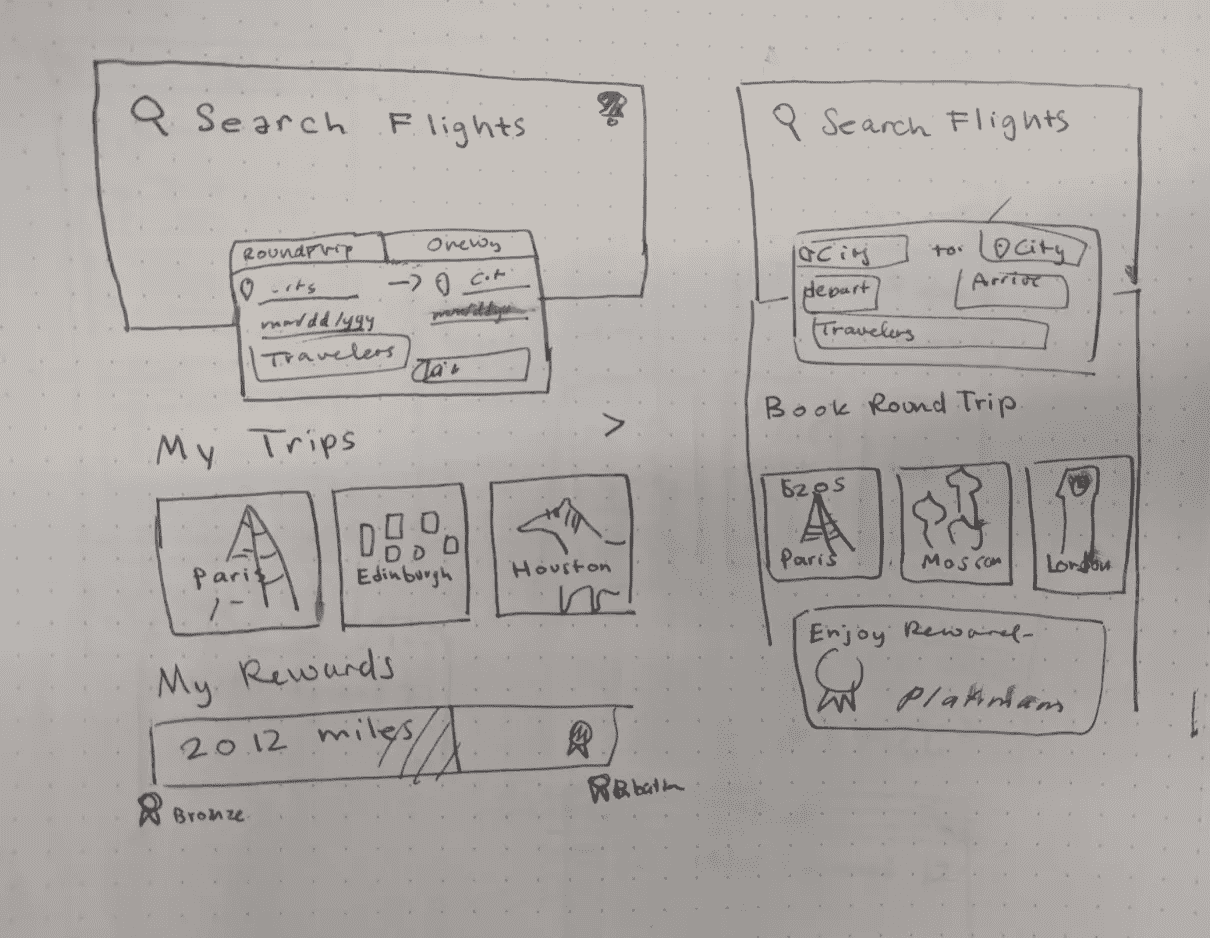 Search Flights
Roundtrip
Onewy
→
mm/dd/yyy
Travelers
My Trips
>
Paris
Edinburgh
Houston
My Rewards
2012 miles
Bronze
Search Flights
City to: City
depart
Arrive
Travelers
Book Round Trip
Paris
Moscow
London
Enjoy Reward-
Platinum